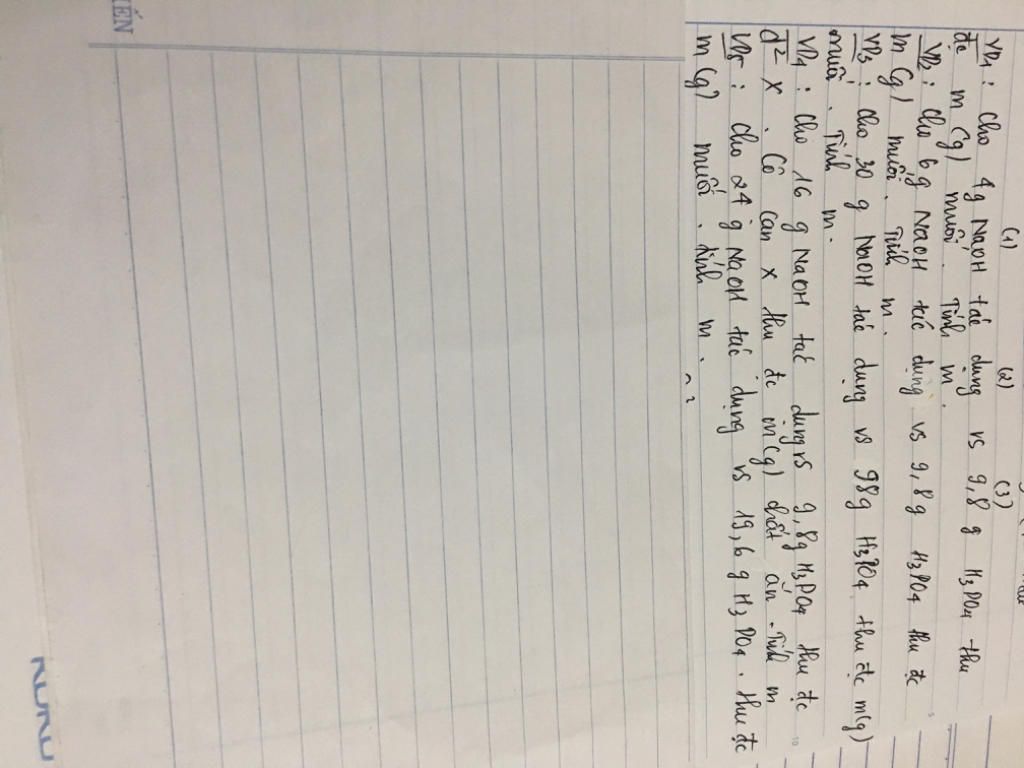 (1) (2) (3)
VD1 : Cho 4g NaOH tác dụng vs 9,8 g H3PO4 thu
đc m (g) muối . Tính m .
VD2 : Cho 6g NaOH tác dụng vs 9,8g H3PO4 thu đc
m (g) muối . Tính m .
VD3 : Cho 30 g NaOH tác dụng vs 98g H3PO4 thu đc m(g)
muối . Tính m .
VD4 : Cho 16 g NaOH tác dụng vs 9,8g H3PO4 thu đc
d² X . Cô cạn X thu đc m(g) chất rắn . Tính m
VD5 : Cho 24 g NaOH tác dụng vs 19,6 g H3PO4 . thu đc
m (g) muối . tính m .
ẾN